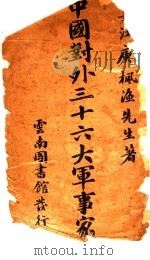 江廖楓漁先生著
中國對外三十六大軍事家
雲南圖書館發行
mtoou.info